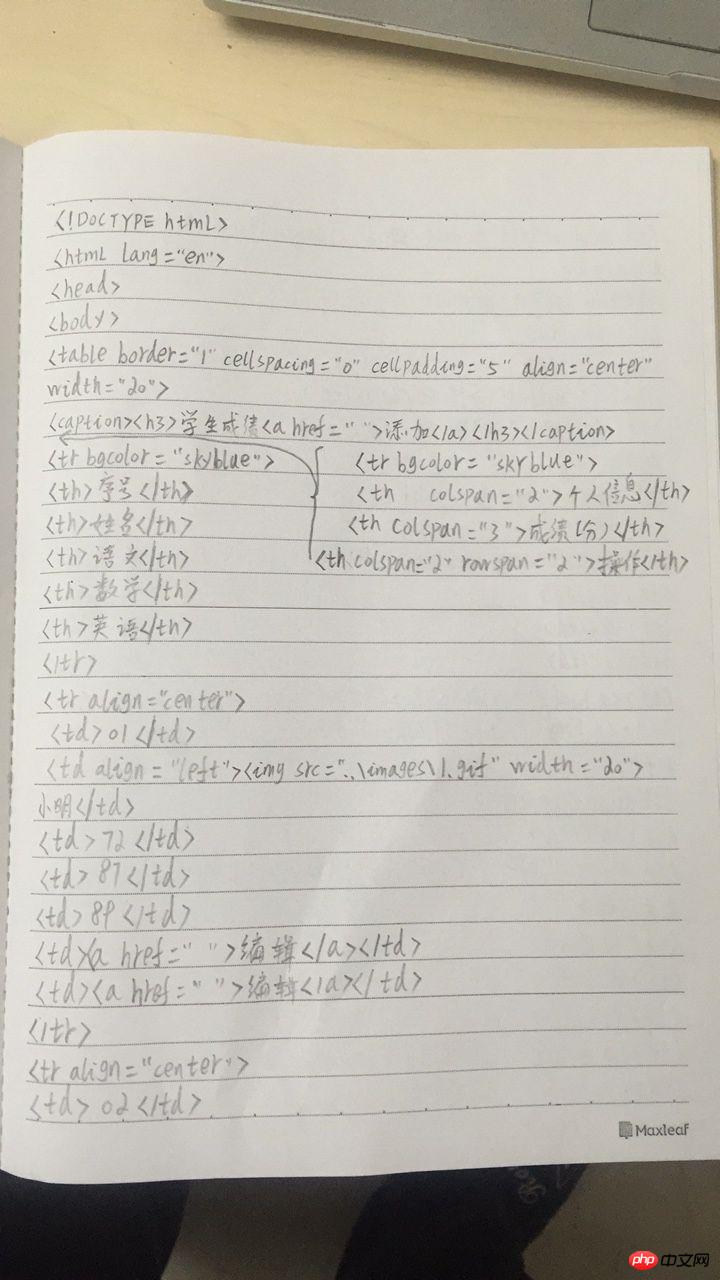 <!DOCTYPE html>
<html lang="en">
<head>
<body>
<table border="1" cellspacing="0" cellpadding="5" align="center"
width="20">
<caption><h3>学生成绩<a href=" ">添加</a></h3></caption>
<tr bgcolor="skyblue">
<th>序号</th>
<th>姓名</th>
<th>语文</th>
<th>数学</th>
<th>英语</th>
</tr>
<tr bgcolor="skyblue">
<th colspan="2">个人信息</th>
<th colspan="3">成绩(分)</th>
<th colspan="2" rowspan="2">操作</th>
<tr align="center">
<td>01</td>
<td align="left"><img src="..\images\1.gif" width="20">
小明</td>
<td>72</td>
<td>87</td>
<td>89</td>
<td><a href=" ">编辑</a></td>
<td><a href=" ">编辑</a></td>
</tr>
<tr align="center">
<td>02</td>
Maxleaf
php中文网